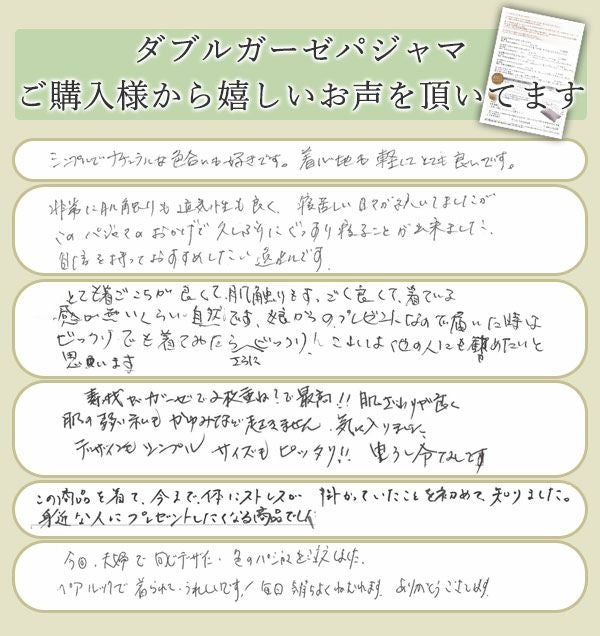 ダブルガーゼパジャマ
ご購入様から嬉しいお声を頂いてます
シンプルでナチュラルな色合いも好きです。着心地も軽くてとても良いです。
非常に肌触りも通気性も良く、寝苦しい日々が続いてましたが
このパジャマのおかげで久しぶりにぐっすり寝ることが出来ました。
自信を持っておすすめしたい逸品です。
とても着ごこちが良くて、肌触りもすごく良くて、着ている
感が無いくらい自然です。娘からのプレゼントなので届いた時は
ビックリでも着てみたらさらにビックリ! これは他の人にも勧めたいと
思います
素材がガーゼで2枚重ねで最高!! 肌ざわりが良く
肌の弱い私もかゆみなど起きません。気に入りました。
デザインもシンプル サイズもピッタリ!!
この商品を着て、今まで、体にストレスが掛かっていたことを初めて知りました。
身近な人にプレゼントしたくなる商品でした
今回、夫婦で同じデザイン・色のパジャマを注文しました。
ペアルックで着られて、うれしいです! 毎日気持ちよくねむれます。ありがとうございます